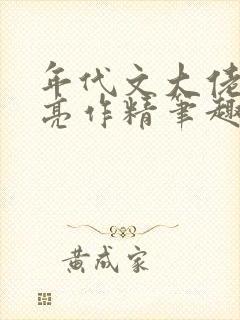 年代文大佬
亮作精笔趣
黄成家